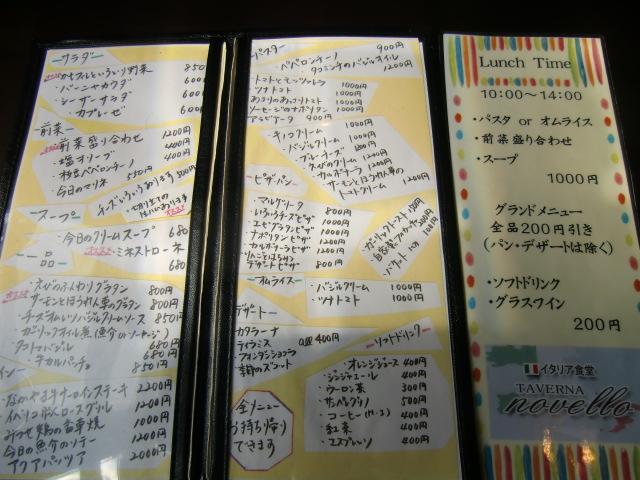 サラダ
850
バーニャカウダ 600
シーザーサラダ 600
カプレーゼ 600
前菜
前菜盛り合わせ 1200円
塩オリーブ 400円
枝豆ペペロンチーノ 400円
今日のマリネ 550円
チーズいろいろあります 500円
スープ
今日のクリームスープ 680
ミネストローネ 680
一品
えびのふんわりグラタン 800円
サーモンとほうれん草のグラタン 800円
チーズオムレツバジルクリームソース 850円
ガーリックオイル煮(魚介orソーセージ)
トマトバジル 680円
牛カルパッチョ 850円
メイン
なかやま牛サーロインステーキ 2200円
イベリコ豚ロースグリル 1200円
みつせ鶏の香草焼 1000円
今日の魚介のソテー 1000円
アクアパッツァ 2000円
パスタ
ペペロンチーノ 900円
タコミンチのバジルオイル 1200円
トマトとモッツァレラ 1000円
ツナトマト 1000円
あさりのあっさりトマト 1000円
ソーセージのナポリタン 1000円
アラビアータ 900円
キノコクリーム 1000円
バジルクリーム 1000円
ブルーチーズ
カルボナーラ
サーモンとほうれん草の
トマトクリーム 1200円
ピザ・パン
マルゲリータ 800円
いろいろチーズピザ 1000円
エビグラタンピザ 1000円
ナポリタンピザ 1000円
カルボナーラピザ 1000円
りんごとはちみつ
デザートピザ 800円
ガーリックトースト
自家製フォカッチャ
バケット
オムライス
バジルクリーム 1000円
ツナトマト 1000円
デザート
カタラーナ
ティラミス
フォンダンショコラ
季節のスフレット
400円
ソフトドリンク
オレンジジュース 400円
ジンジャエール 400円
ウーロン茶 300円
サンペレグリノ 500円
コーヒー(H・I) 400円
紅茶 400円
エスプレッソ 400円
全メニュー
お持ち帰り
できます
Lunch Time
10:00〜14:00
・パスタ or オムライス
・前菜盛り合わせ
・スープ
1000円
グランドメニュー
全品200円引き
(パン・デザートは除く)
・ソフトドリンク
・グラスワイン
200円
イタリア食堂
TAVERNA
novello